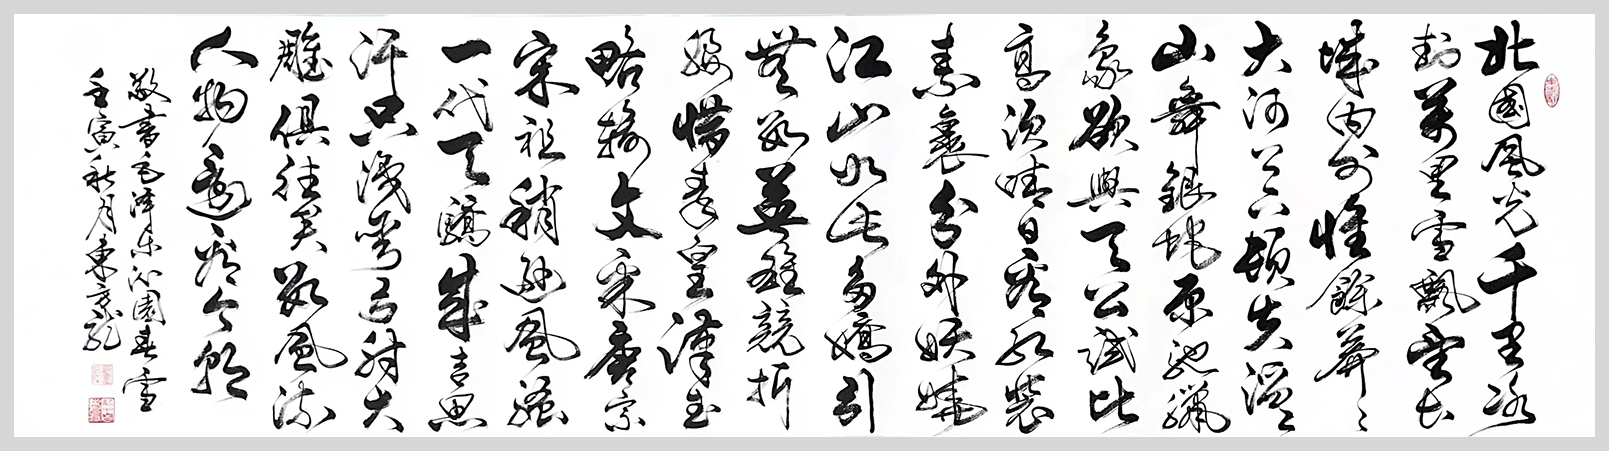 北國風光千里冰
封萬里雪飄望長
城內外惟餘莽々
大河上下頓失滔々
山舞銀蛇原馳蠟
象欲與天公試比
高須晴日看紅裝
素裹分外妖嬈
江山如此多嬌引
無數英雄競折
腰惜秦皇漢武
略輸文采唐宗
宋祖稍遜風騷
一代天驕成吉思
汗只識彎弓射大
雕俱往矣數風流
人物還看今朝
敬書毛澤東沁園春雪
壬寅秋月東彥龍